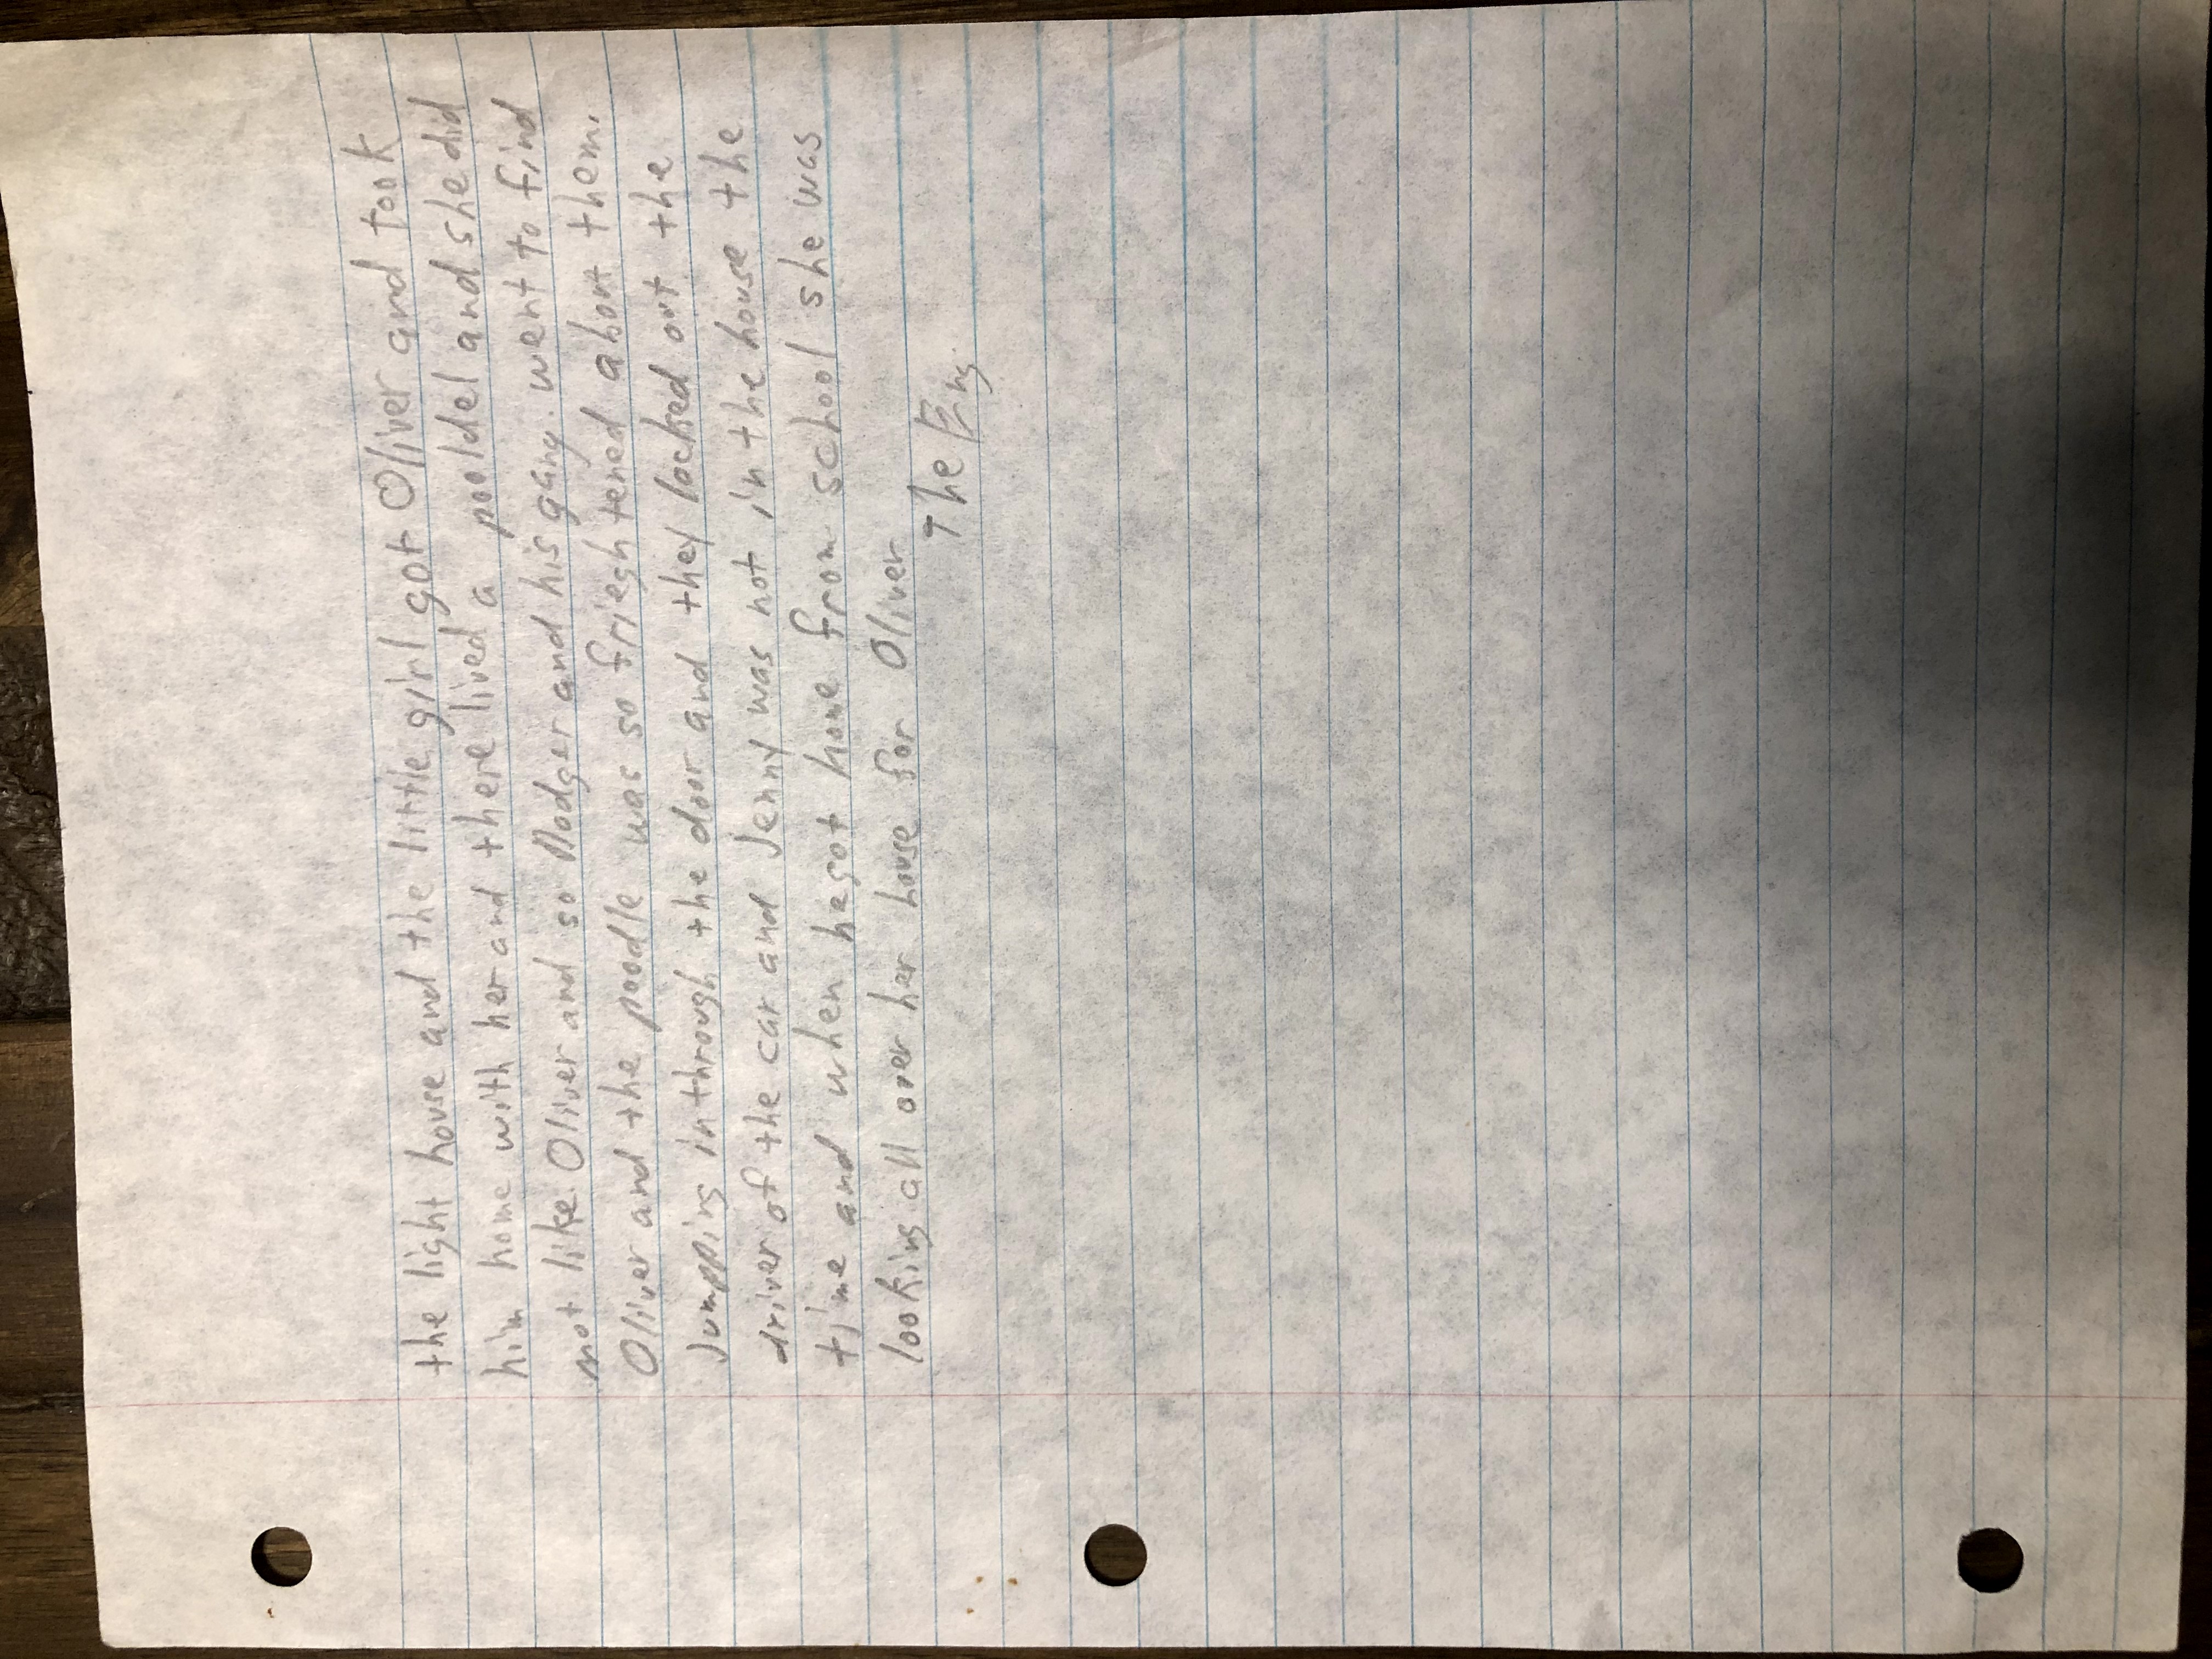 the light house and the little girl got Oliver and took
him home with her and there lived a pooldel and she did
not like Oliver and so Dodger and his gang went to find
Oliver and the poodle was so friegh tened about them.
Jumpping in through the door and they locked out the
driver of the car and Jenny was not in the house the
time and when he got home from school she was
looking all over her house for Oliver
The